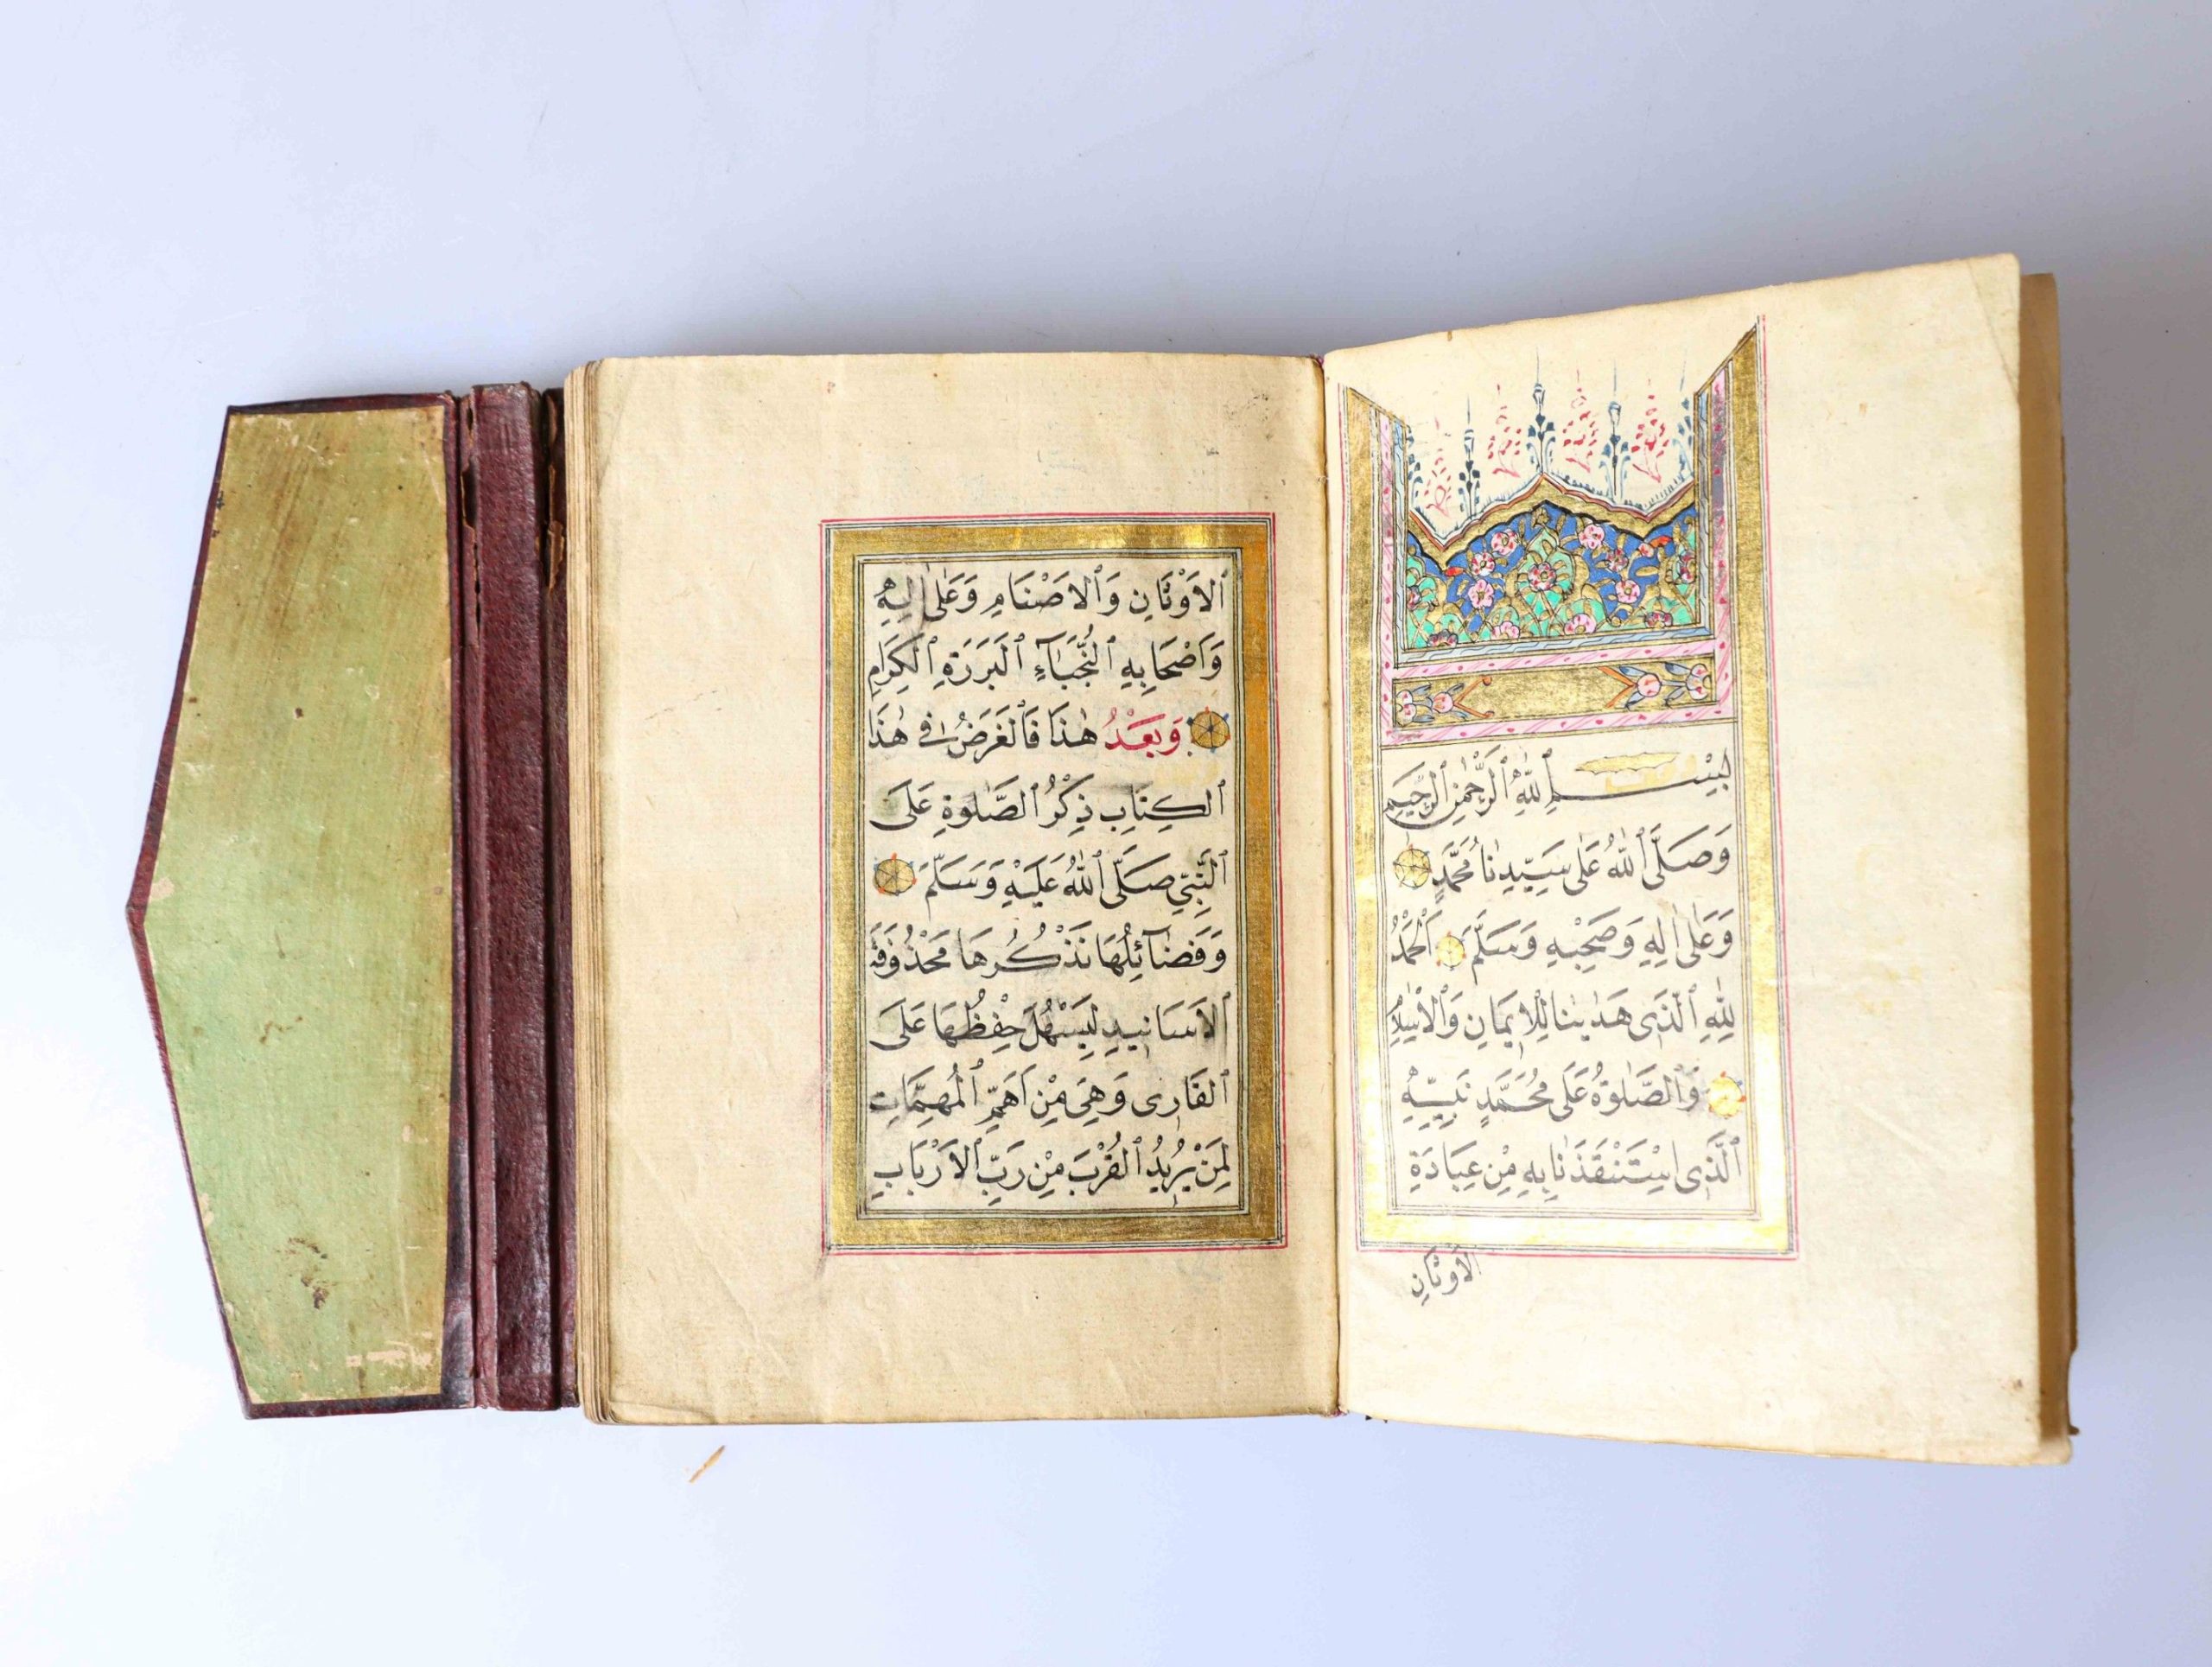 بِسْمِ ٱللّٰهِ ٱلرَّحْمٰنِ ٱلرَّحِيمِ
وَصَلَّى ٱللّٰهُ عَلٰى سَيِّدِنَا مُحَمَّدٍ
وَعَلٰى اٰلِهِ وَصَحْبِهِ وَسَلَّمَ اَلْحَمْدُ
لِلّٰهِ ٱلَّذِى هَدٰينَا لِلْاِيمَانِ وَٱلْاِسْلَامِ
وَٱلصَّلٰوةُ عَلٰى مُحَمَّدٍ نَبِيِّهِ
ٱلَّذِى اِسْتَنْقَذَنَا بِهِ مِنْ عِبَادَةِ
الْاَوْثَانِ
ٱلْاَوْثَانِ وَٱلْاَصْنَامِ وَعَلٰى اٰلِهِ
وَاَصْحَابِهِ ٱلنُّجَبَآءِ ٱلْبَرَرَةِ ٱلْكِرَامِ
وَبَعْدُ هٰذَا فَٱلْغَرَضُ فِى هٰذَا
ٱلْكِتَابِ ذِكْرُ ٱلصَّلٰوةِ عَلَى
ٱلنَّبِيِّ صَلَّى ٱللّٰهُ عَلَيْهِ وَسَلَّمَ
وَفَضَآئِلُهَا نَذْكُرُهَا مَحْذُوفَةَ
ٱلْاَسَانِيدِ لِيَسْهُلَ حِفْظُهَا عَلَى
ٱلْقَارِى وَهِيَ مِنْ اَهَمِّ ٱلْمُهِمَّاتِ
لِمَنْ يُرِيدُ ٱلْقُرْبَ مِنْ رَبِّ ٱلْاَرْبَابِ